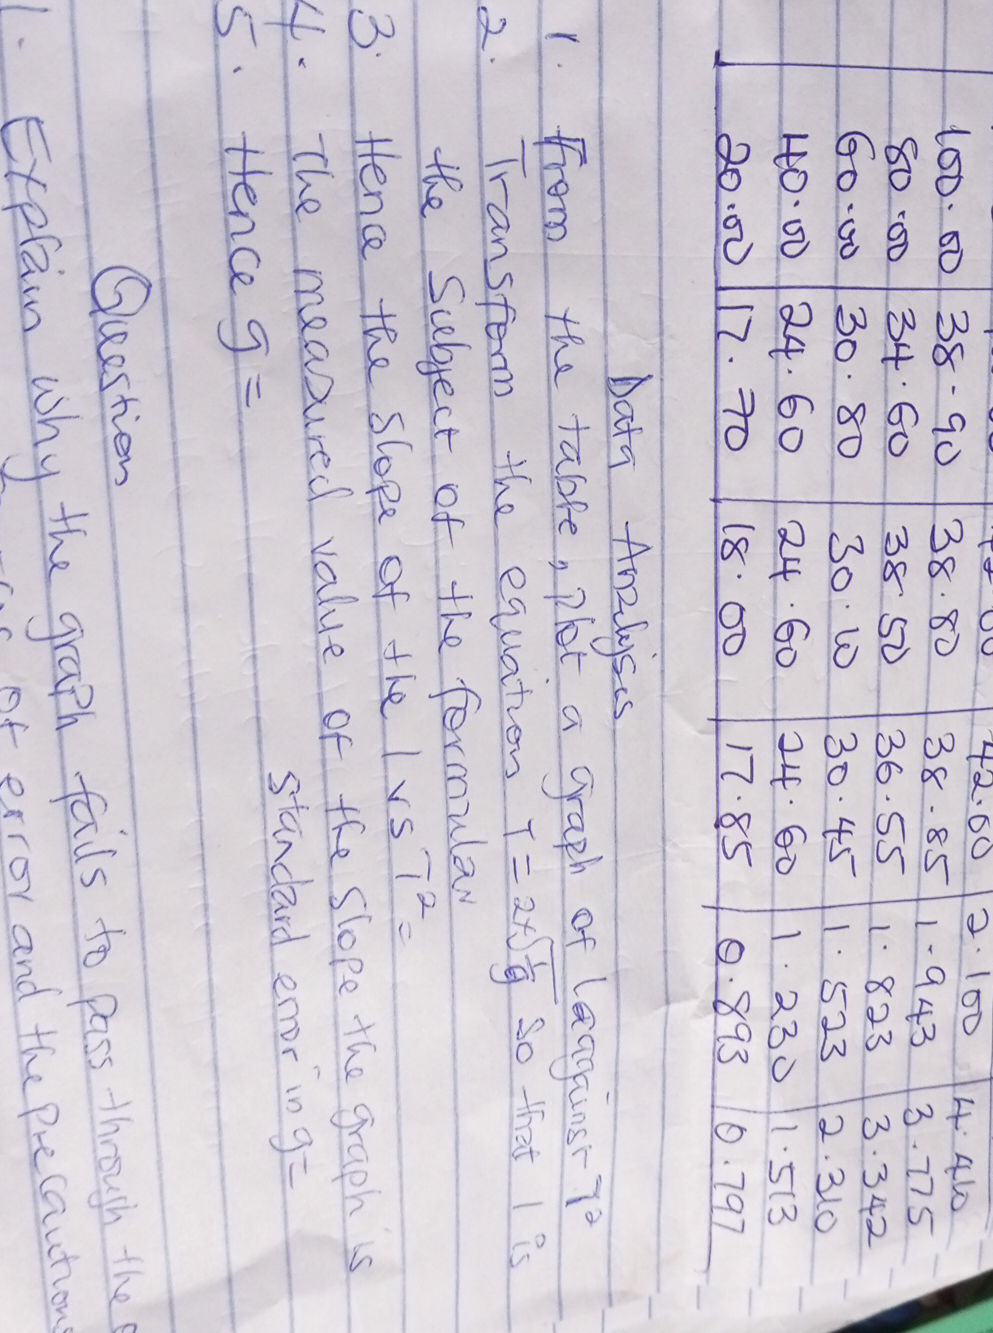 42.00 2.100 4.410
100.00 38.90 38.80 38.85 1.943 3.775
80.00 34.60 38.50 36.55 1.823 3.342
60.00 30.80 30.10 30.45 1.523 2.310
40.00 24.60 24.60 24.60 1.230 1.513
20.00 17.70 18.00 17.85 0.893 0.797
Data Analysis
1. From the table, plot a graph of l against T²
2. Transform the equation T = 2π√l/g so that l is
the Subject of the formular
3. Hence the Slope of the l vs T² =
4. The measured value of the Slope the graph is
5. Hence g = Standard error in g =
Question
1. Explain why the graph fails to pass through the
of error and the precautions